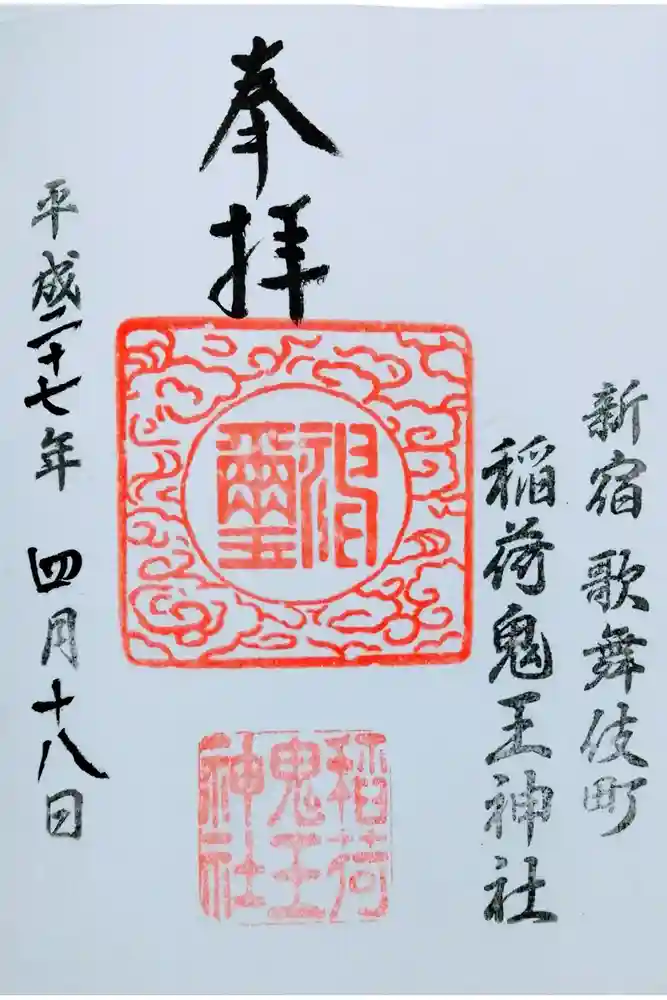 新宿歌舞伎町
稲荷鬼王神社
奉拝
神璽
稲荷
鬼王
神社
平成二十七年四月十八日